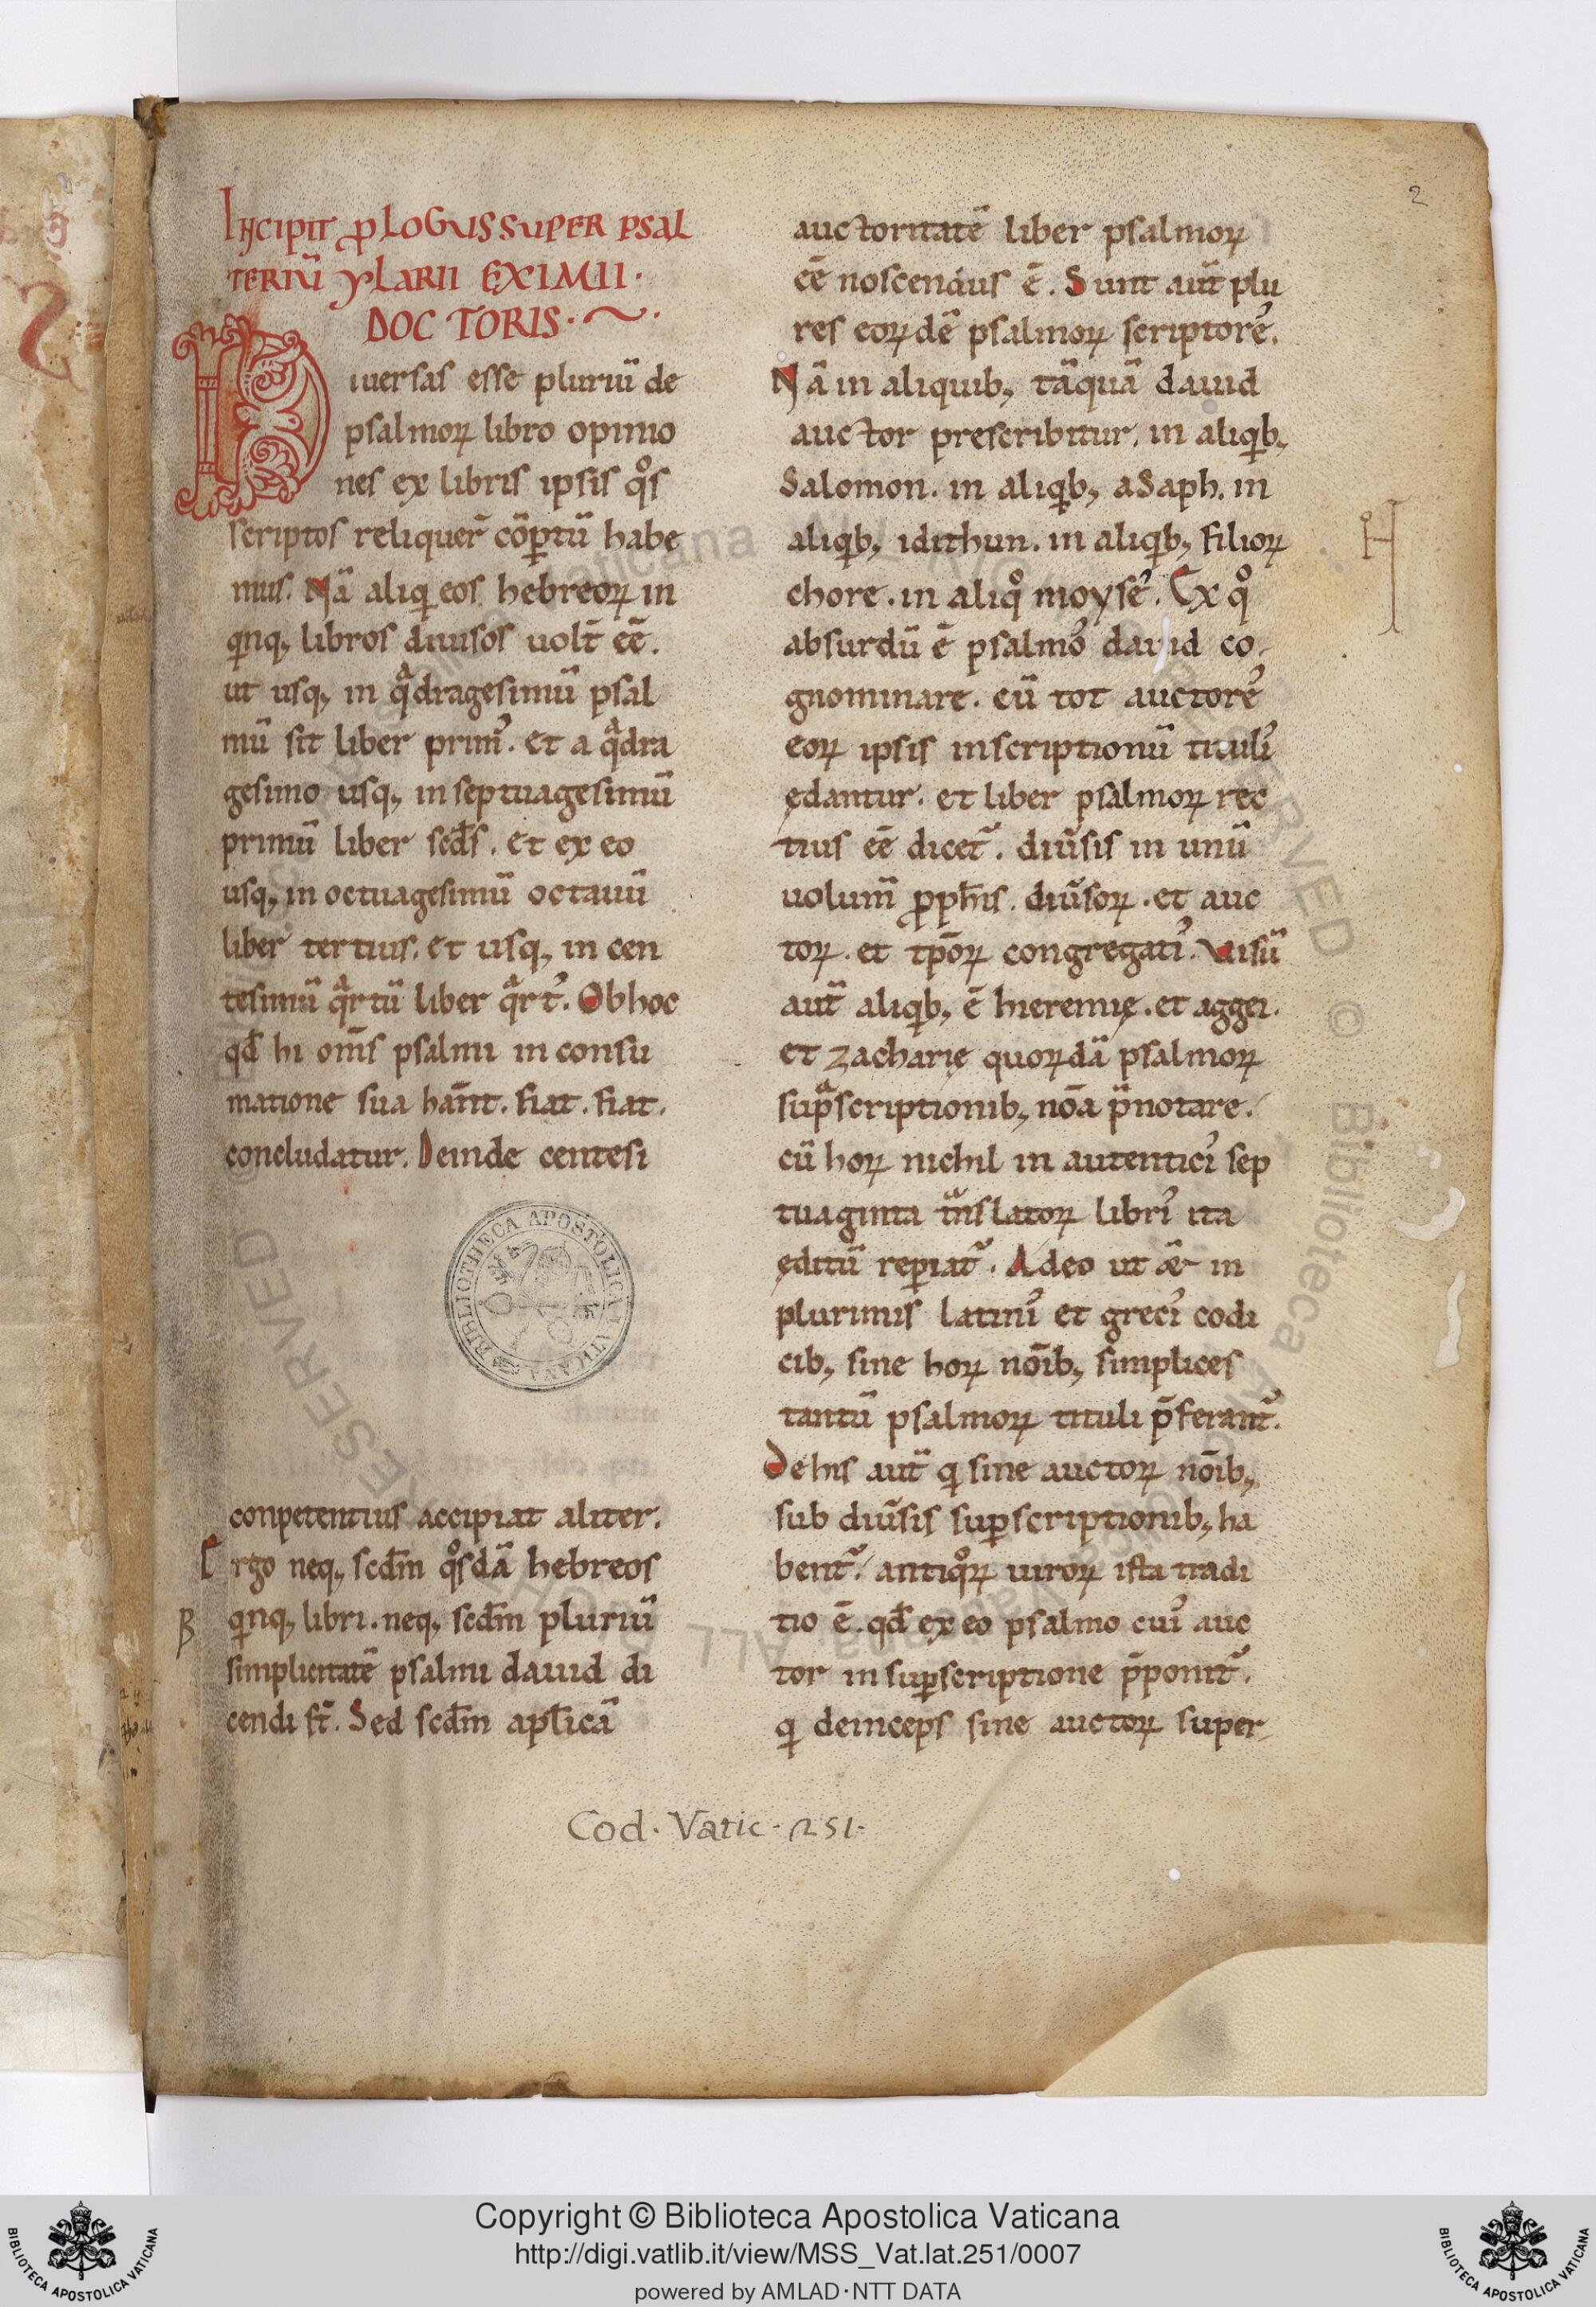 Incipit ꝓlogus super psal
teriū ylarii eximii.
doctoris.
Diuersas esse pluriū de
psalmoꝝ libro opinio
nes ex libris ipsis qͦs
scriptos reliquer̄ cōꝑtū habe
mus. Nā aliqi eos hebreoꝝ in
qinqꝫ libros diuisos uolt̄ eē.
ut usqꝫ in qᵃdragesimū psal
mū sit liber primꝰ. et a qᵃdra
gesimo usqꝫ in septuagesimū
primū liber scds̄. et ex eo
usqꝫ in octuagesimū octauū
liber tertius. et usqꝫ in cen
tesimū qᵃrtū liber qᵃrtꝰ. Ob hoc
qđ hi om̄s psalmi in consu
matione sua han̄t. fiat. fiat.
concludatur. Deinde centesi
conpetentius accipiat aliter.
Ergo neqꝫ scdm̄ qͦsdā hebreos
qinqꝫ libri. neqꝫ scdm̄ pluriū
simplicitatē psalmi dauid di
cendi st̄. Sed scdm̄ apl̄icā
2
auctoritatē liber psalmoꝝ
eē noscendus ē. Sunt aut̄ plu
res eoꝝdē psalmoꝝ scriptoreꝰ.
Nā in aliquibꝫ tāquā dauid
auctor prescribitur. in aliqibꝫ
Salomon. in aliqibꝫ aSaph. in
aliqibꝫ idithun. in aliqibꝫ filioꝝ
chore. in aliqͦ moyseꝰ. Ex qͦ
absurdū ē psalmoꝰ dauid co-
gnominare. cū tot auctoreꝰ
eoꝝ ipsis inscriptionū tituliꝰ
ędantur. et liber psalmoꝝ rec
tius eē dicet᷑. diu͛sis in unū
uolum̄ ꝓph̄is. diu͛soꝝ. et auc
toꝝ. et tp̄oꝝ congregatiꝰ. Visū
aut̄ aliqibꝫ ē hieremię. et aggei.
et zacharię quoꝝdā psalmoꝝ
supᵃscriptionibꝫ nōa pᵃnotare.
cū hoꝝ nichil in autenticiꝰ sep
tuaginta tᵃnslatoꝝ libriꝰ ita
ęditū reꝑiat᷑. Adeo ut &̄ in
plurimis latiniꝰ et greciꝰ codi
cibꝫ sine hoꝝ nōibꝫ simplices
tantū psalmoꝝ tituli p̄ferant᷑.
De his aut̄ qi sine auctoꝝ nōibꝫ
sub diu͛sis suꝑscriptionibꝫ ha
bent᷑. antiqͦꝝ uiroꝝ ista tradi
tio ē. qđ ex eo psalmo cuiꝰ auc
tor in suꝑscriptione p̄ponit᷑.
qi deinceps sine auctoꝝ super-
Cod. Vatic. 251.
BIBLIOTHECA APOSTOLICA VATICANA
Copyright © Biblioteca Apostolica Vaticana
http://digi.vatlib.it/view/MSS_Vat.lat.251/0007
powered by AMLAD·NTT DATA
BIBLIOTECA APOSTOLICA VATICANA
BIBLIOTECA APOSTOLICA VATICANA